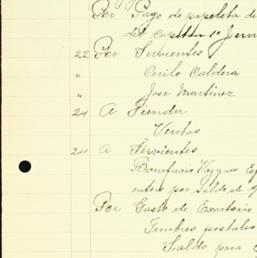 Por Pago de papeleta de
del capitan 1º Junio
22 Por Sirvientes
" Cirilo Caldera
" Jose Martinez
24 A Tienda
Ventas
24 A Sirvientes
Bonifacio Vazquez
entero por saldo de
Por Gasto de Escritorio
Timbres postales
Saldo para